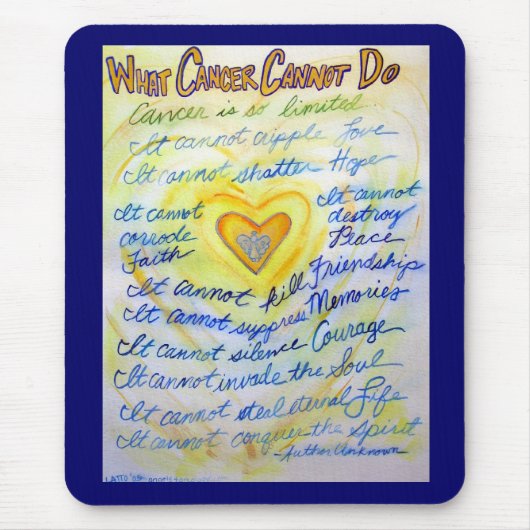 WHAT CANCER CANNOT DO
Cancer is so limited...
It cannot cripple Love
It cannot shatter Hope
It cannot
corrode
Faith
It cannot
destroy
Peace
It cannot kill Friendship
It cannot suppress Memories
It cannot silence Courage
It cannot invade the Soul
It cannot steal eternal Life
It cannot conquer the Spirit
-Author Unknown
LATTO '09